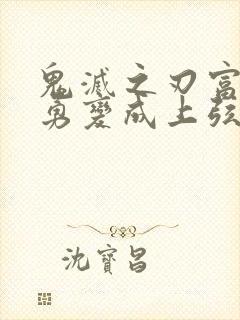 鬼滅之刃富
勇變成上弦
沈寶昌